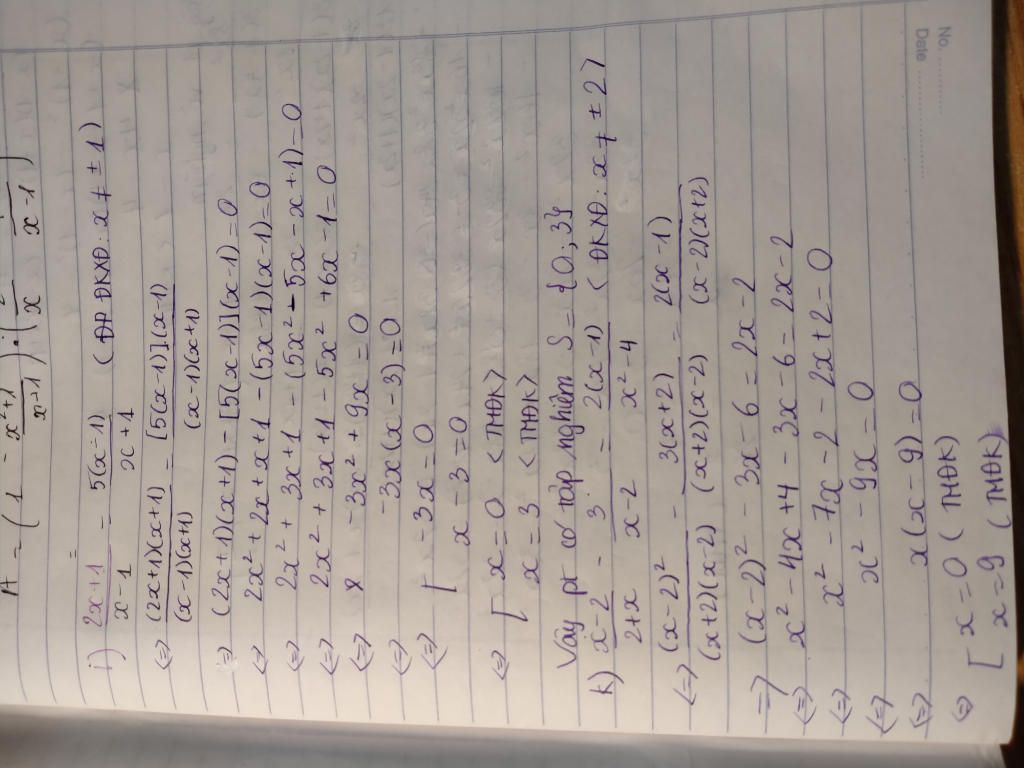 A = (1 - x²+1 / x+1) : (2 / x - 1 / x-1)
=
i) 2x+1 / x-1 = 5(x-1) / x+1 (ĐKXĐ: x ≠ ±1)
<=> (2x+1)(x+1) / (x-1)(x+1) = [5(x-1)](x-1) / (x-1)(x+1)
=> (2x+1)(x+1) - [5(x-1)](x-1) = 0
<=> 2x² + 2x + x + 1 - (5x-1)(x-1) = 0
<=> 2x² + 3x + 1 - (5x² - 5x - x + 1) = 0
<=> 2x² + 3x + 1 - 5x² + 6x - 1 = 0
<=> -3x² + 9x = 0
<=> -3x(x-3) = 0
<=> [ -3x = 0
x - 3 = 0
<=> [ x = 0 <TMĐK>
x = 3 <TMĐK>
Vậy pt có tập nghiệm S = {0; 3}
k) x-2 / 2+x - 3 / x-2 = 2(x-1) / x²-4 <ĐKXĐ: x ≠ ±2>
<=> (x-2)² / (x+2)(x-2) - 3(x+2) / (x+2)(x-2) = 2(x-1) / (x-2)(x+2)
=> (x-2)² - 3x - 6 = 2x - 2
<=> x² - 4x + 4 - 3x - 6 = 2x - 2
<=> x² - 7x - 2 - 2x + 2 = 0
<=> x² - 9x = 0
<=> x(x-9) = 0
<=> [ x = 0 (TMĐK)
x = 9 (TMĐK)
No.
Date